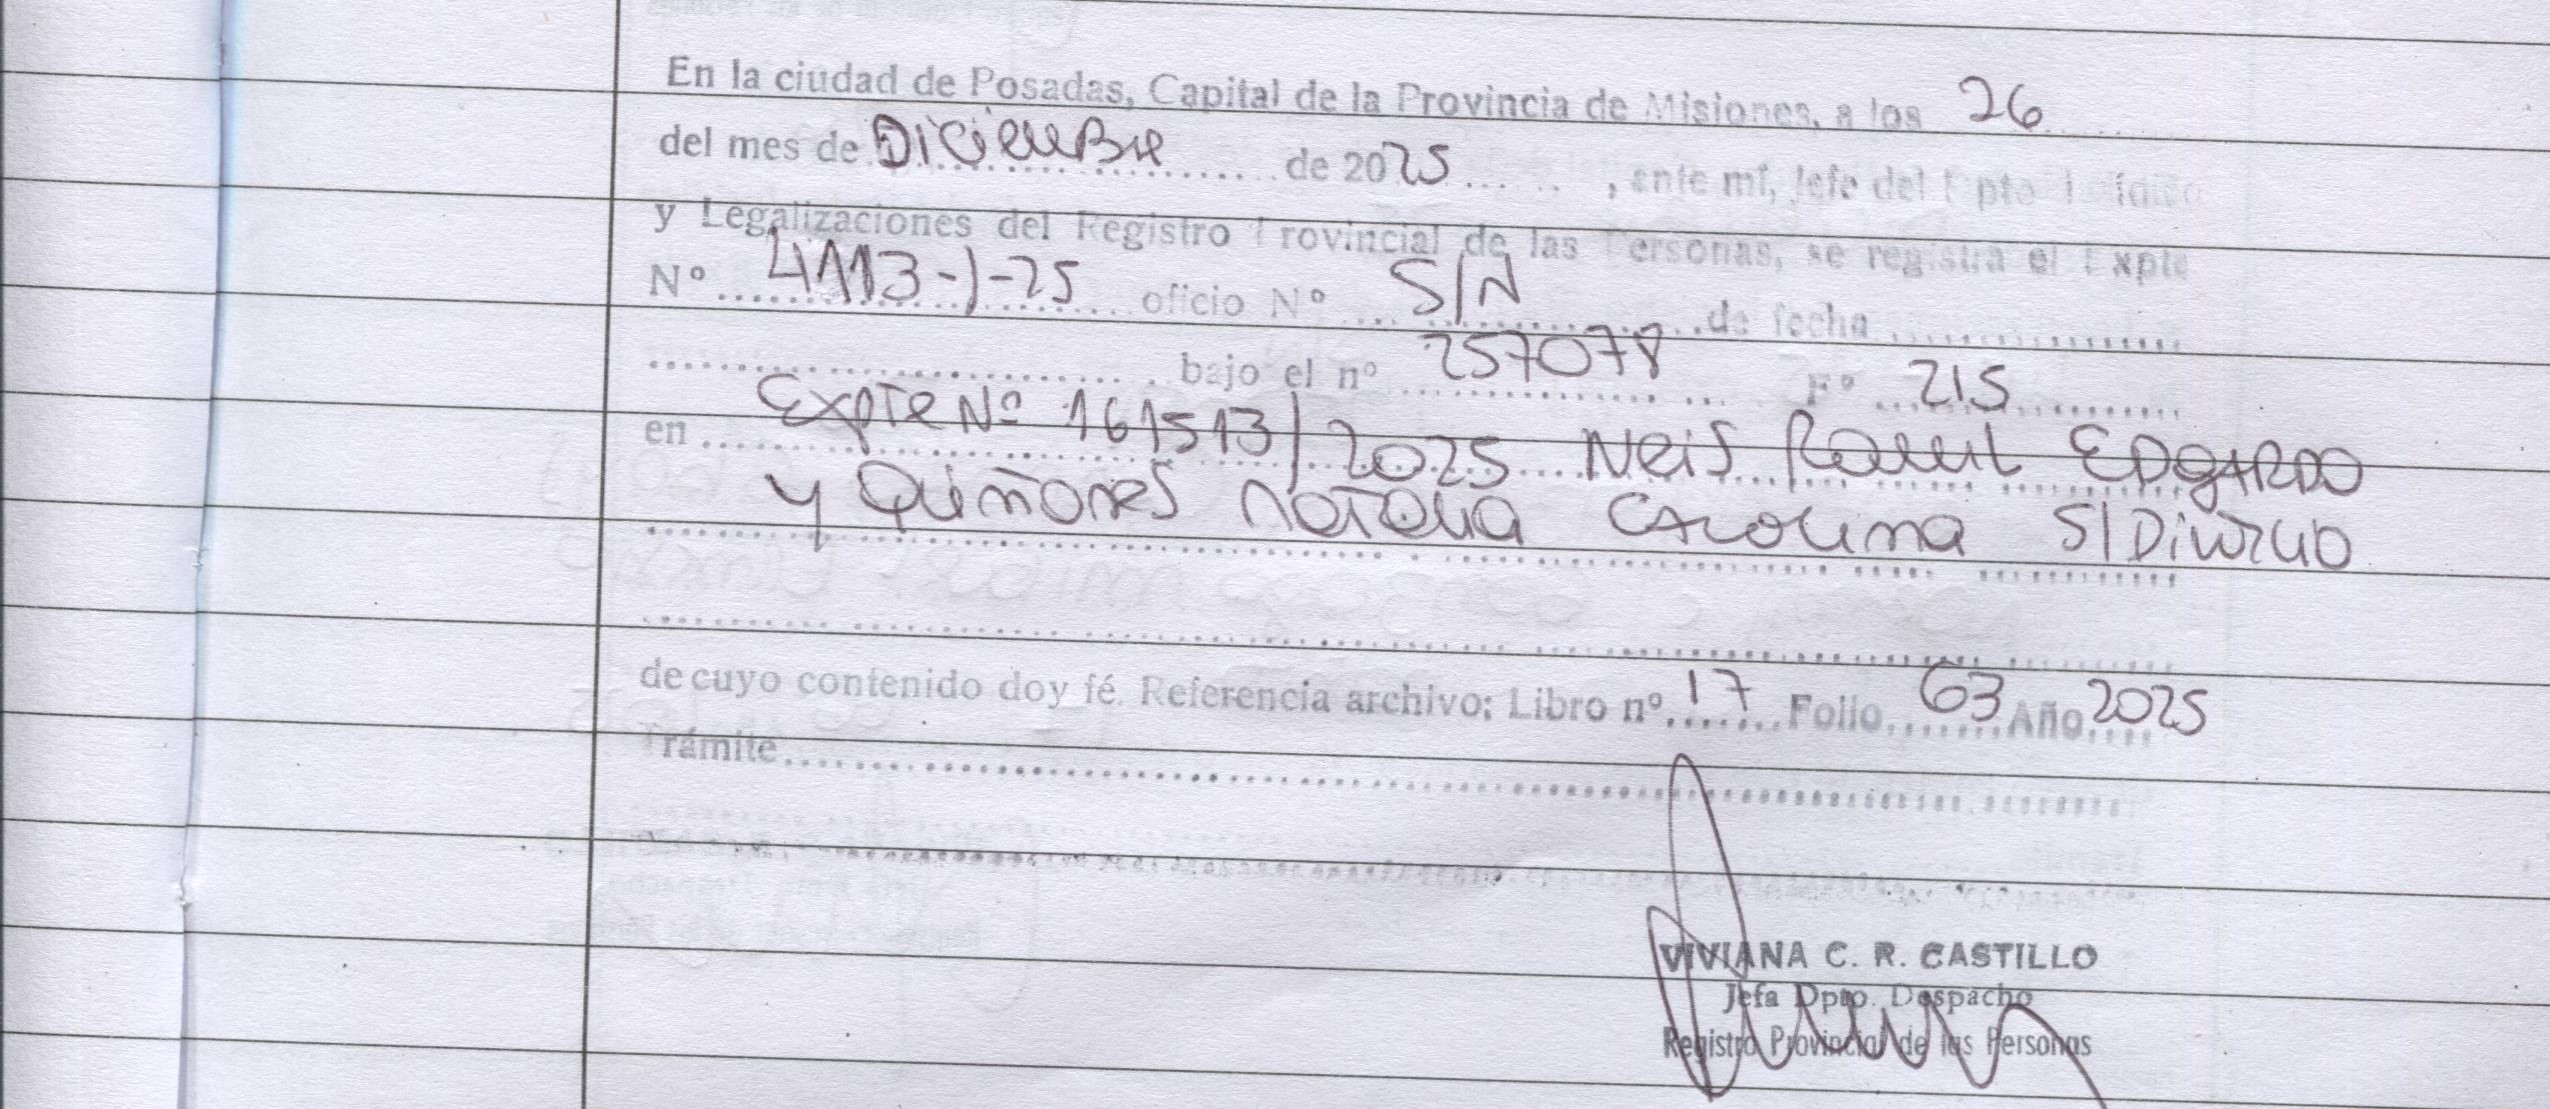 En la ciudad de Posadas, Capital de la Provincia de Misiones, a los 26
del mes de Diciembre de 2025, ante mí, Jefe del Dpto Jurídico
y Legalizaciones del Registro Provincial de las Personas, se registra el Expte
Nº 4113-J-25 oficio Nº S/N de fecha
bajo el nº 257078 Fº 215
en Expte Nº 161513/2025 Neis Raul EDgARDO
y Quiñones Natalia Carolina S/Divorcio
de cuyo contenido doy fé. Referencia archivo: Libro nº 17 Folio 63 Año 2025
Trámite
VIVIANA C. R. CASTILLO
Jefa Dpto. Despacho
Registro Provincial de las Personas